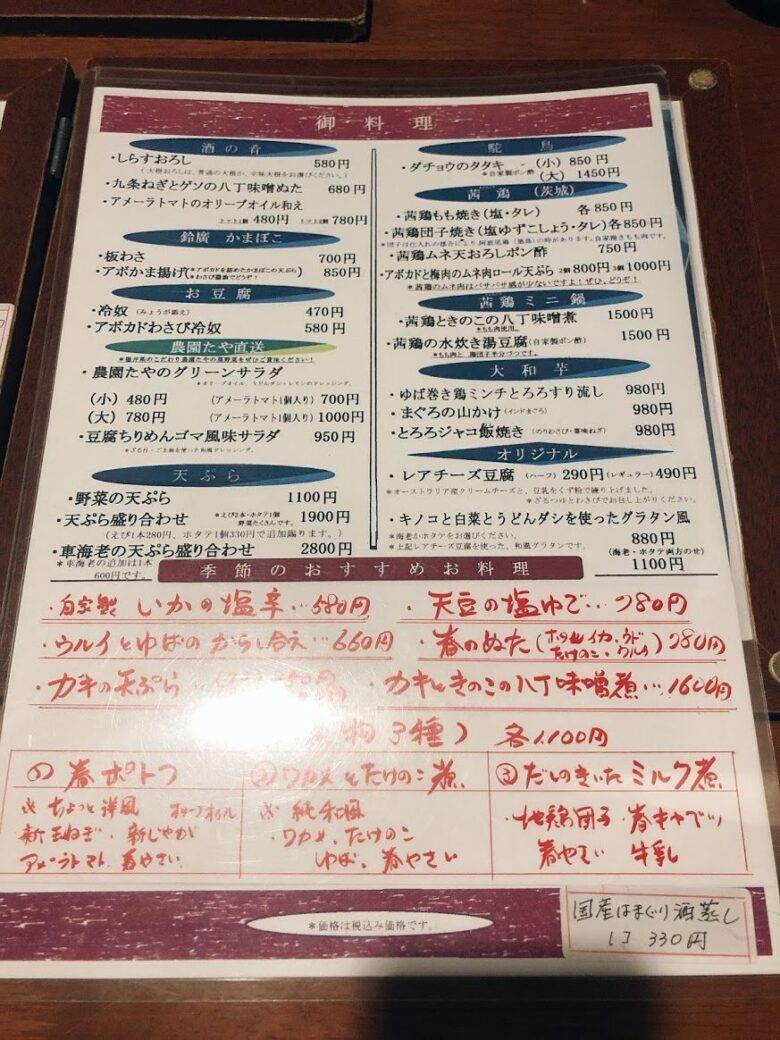 御料理
酒の肴
・しらすおろし 580円
・九条ねぎとゲソの八丁味噌ぬた 680円
・アメーラトマトのオリーブオイル和え
トマト1個 480円 トマト2個 780円
鈴廣 かまぼこ
・板わさ 700円
・アボかま揚げ(*アボカドを詰めたかまぼこの天ぷら) 850円
わさび醤油でどうぞ!
お豆腐
・冷奴 (みょうが添え) 470円
・アボカドわさび冷奴 580円
農園たや直送
*福井県のこだわり農園たやの夏野菜をぜひご賞味ください!
・農園たやのグリーンサラダ
(小) 480円 (アメーラトマト1個入り) 700円
(大) 780円 (アメーラトマト1個入り) 1000円
・豆腐ちりめんゴマ風味サラダ 950円
天ぷら
・野菜の天ぷら 1100円
・天ぷら盛り合わせ *えび2本・ホタテ1個 1900円
野菜たくさんです。
(えび1本280円、ホタテ1個330円で追加賜ります。)
・車海老の天ぷら盛り合わせ 2800円
*車海老の追加は1本
600円です。
鴕鳥
・ダチョウのタタキ - (小) 850円
*自家製ポン酢 (大) 1450円
茜鶏 (茨城)
・茜鶏もも焼き(塩・タレ) 各850円
・茜鶏団子焼き(塩ゆずこしょう・タレ)各850円
・茜鶏ムネ天おろしポン酢 750円
・アボカドと梅肉のムネ肉ロール天ぷら 2個800円 3個1000円
*茜鶏のムネ肉はパサパサ感が少ないですよ!ぜひ、どうぞ!
茜鶏ミニ鍋
・茜鶏ときのこの八丁味噌煮 1500円
*もも肉使用。
・茜鶏の水炊き湯豆腐(自家製ポン酢) 1500円
*もも肉と 鶏団子半分づつです。
大和芋
・ゆば巻き鶏ミンチとろろすり流し 980円
・まぐろの山かけ (インドまぐろ) 980円
・とろろジャコ飯焼き (のりわさび・薬味ねぎ) 980円
オリジナル
・レアチーズ豆腐 (ハーフ) 290円(レギュラー)490円
*オーストラリア産クリームチーズと、豆乳をくず粉で練り上げました。
*ざるつゆとわさびでお召し上がりください。
・キノコと白菜とうどんダシを使ったグラタン風
*海老かホタテをお選びください。 880円
*上記レアチーズ豆腐を使った、和風グラタンです。 (海老・ホタテ両方のせ)
1100円
季節のおすすめお料理
・自家製 いかの塩辛…580円
・天豆の塩ゆで…780円
・ウルイとゆばのからし合え…660円
・春のぬた(ホタルイカ、ウド たけのこ・ウルイ) 780円
・カキの天ぷら
・カキときのこの八丁味噌煮…1600円
物3種) 各1,100円
① 春ポトフ
※ちょっと洋風 オリーブオイル
新玉ねぎ、新じゃが
アメーラトマト 春やさい
② ワカメとたけのこ煮
※ 純和風
・ワカメ、たけのこ
ゆば、春やさい
③ だしのきいたミルク煮
・地鶏団子・春キャベツ
春やさい 牛乳
*価格は税込み価格です。
国産はまぐり酒蒸し
1コ 330円